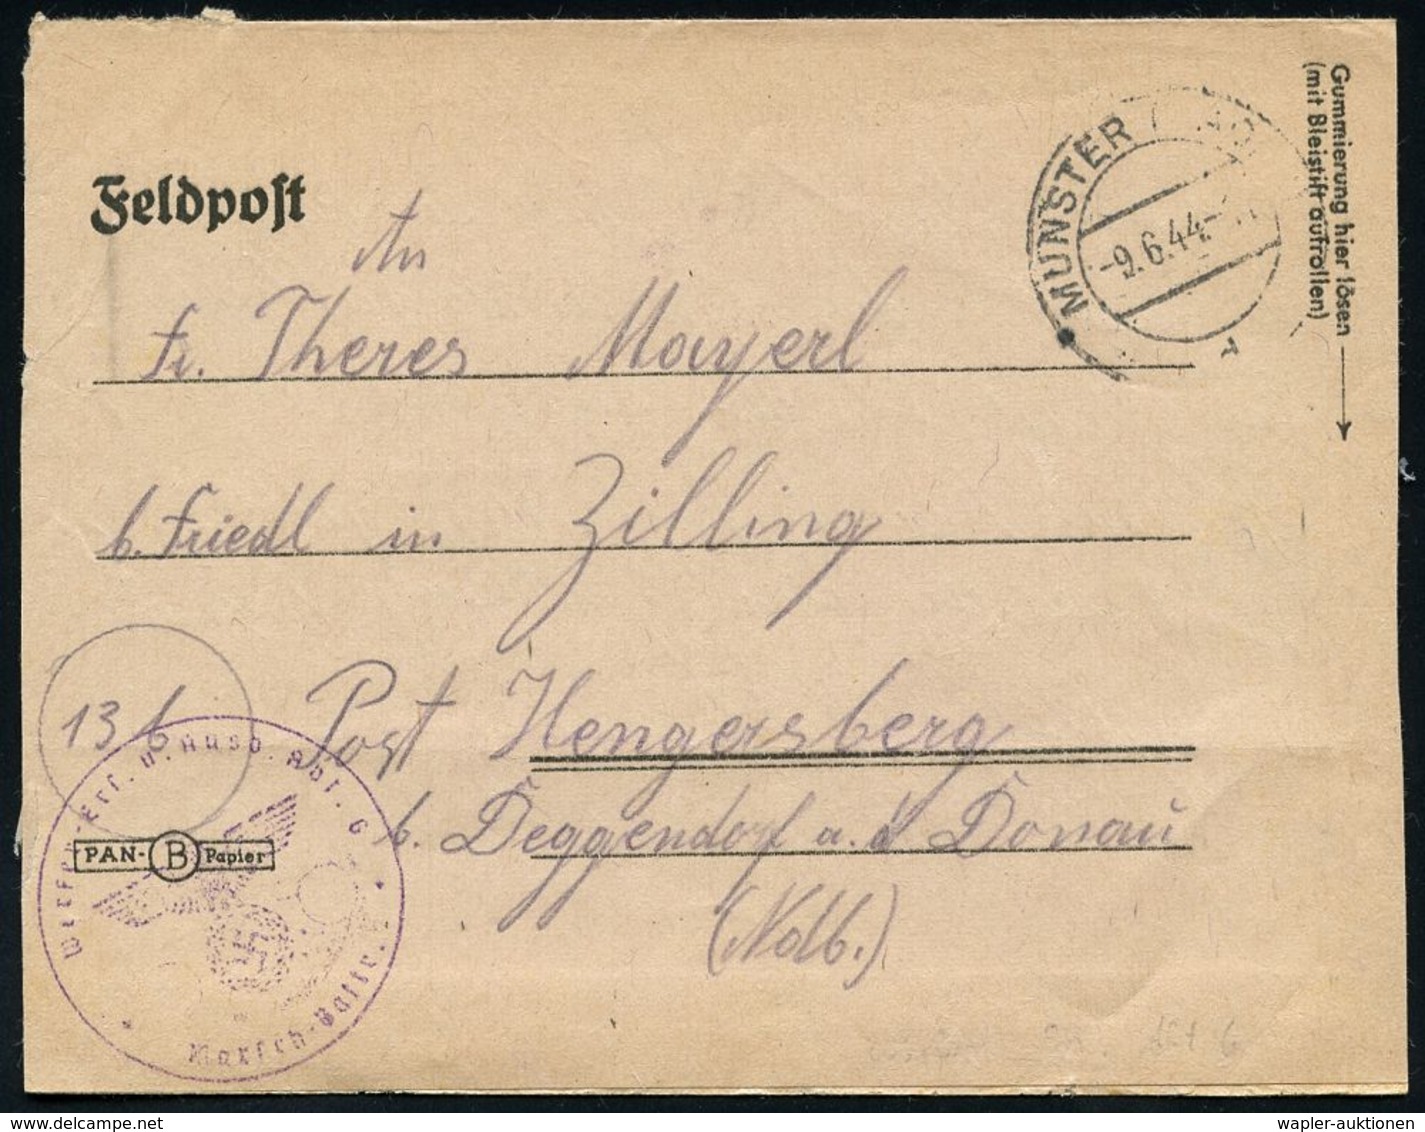 Feldpost
MUNSTER (
-9.6.44.-
Gummierung hier lösen
(mit Bleistift aufrollen)
An
Fr. Theres Mayerl
b. Friedl in Zilling
13b Post Hengersberg
b. Deggendorf a. d Donau
(Ndb.)
PAN-B Papier
Werfer-Ers. u. Ausb. Abt. 6
Marsch-Battr.
delcampe.net
wapler-auktionen